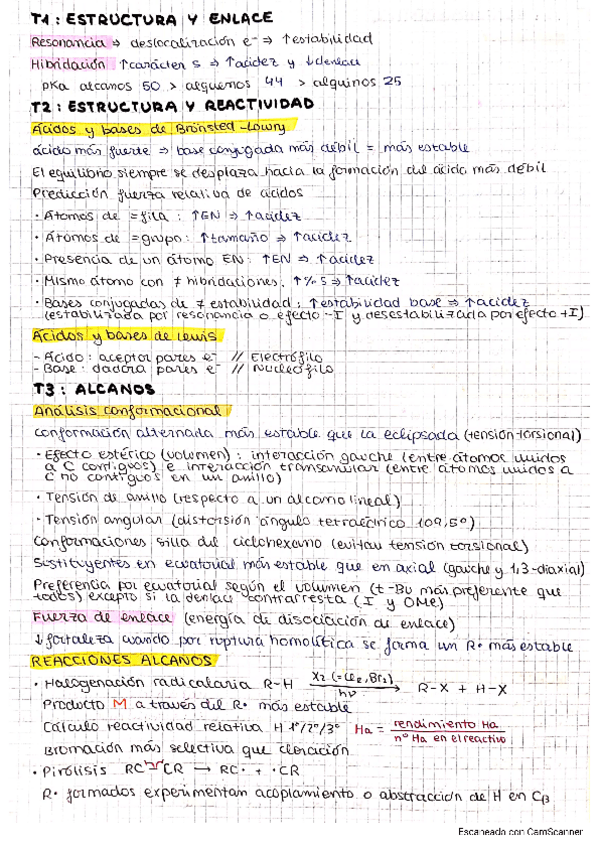 T1: ESTRUCTURA Y ENLACE
Resonancia ⇒ deslocalización e⁻ ⇒ ↑estabilidad
Hibridación ↑carácter s ⇒ ↑acidez y ↓denlace
pKa alcanos 50 > alquenos 44 > alquinos 25
T2: ESTRUCTURA Y REACTIVIDAD
Ácidos y bases de Brönsted-Lowry
ácido más fuerte ⇒ base conjugada más débil = más estable
El equilibrio siempre se desplaza hacia la formación del ácido más débil
Predicción fuerza relativa de ácidos
· Átomos de = fila: ↑EN ⇒ ↑acidez
· Átomos de = grupo: ↑tamaño ⇒ ↑acidez
· Presencia de un átomo EN: ↑EN ⇒ ↑acidez
· Mismo átomo con ≠ hibridaciones: ↑% s ⇒ ↑acidez
· Bases conjugadas de ≠ estabilidad: ↑estabilidad base ⇒ ↑acidez
(estabilizada por resonancia o efecto -I y desestabilizada por efecto +I)
Ácidos y bases de Lewis
- Ácido: aceptor pares e⁻ // Electrófilo
- Base: dadora pares e⁻ // Nucleófilo
T3: ALCANOS
Análisis conformacional
conformación alternada más estable que la eclipsada (tensión torsional)
· Efecto estérico (volumen): interacción gauche (entre átomos unidos
a C contiguos) e interacción transanular (entre átomos unidos a
C no contiguos en un anillo)
· Tensión de anillo (respecto a un alcano lineal)
· Tensión angular (distorsión ángulo tetraédrico 109,5°)
Conformaciones silla del ciclohexano (evitan tensión torsional)
Sustituyentes en ecuatorial más estable que en axial (gauche y 1,3-diaxial)
Preferencia por ecuatorial según el volumen (t-Bu más preferente que
todos) excepto si la denlace contrarresta (I y OMe)
Fuerza de enlace (energía de disociación de enlace)
↓fortaleza cuando por ruptura homolítica se forma un R• más estable
REACCIONES ALCANOS
· Halogenación radicalaria R-H X₂ (=Cl₂, Br₂) / hν → R-X + H-X
Producto M a través del R• más estable
Cálculo reactividad relativa H 1°/2°/3° Ha = rendimiento Ha / n° Ha en el reactivo
Bromación más selectiva que cloración
· Pirólisis RC CR → RC• + •CR
R• formados experimentan acoplamiento o abstracción de H en Cβ
Escaneado con CamScanner